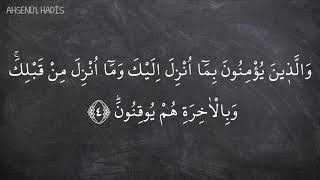 AHSENÜ'L HADİS
وَالَّذ۪ينَ يُؤْمِنُونَ بِمَٓا اُنْزِلَ اِلَيْكَ وَمَٓا اُنْزِلَ مِنْ قَبْلِكَۚ
وَبِالْاٰخِرَةِ هُمْ يُوقِنُونَۜ ﴿٤﴾